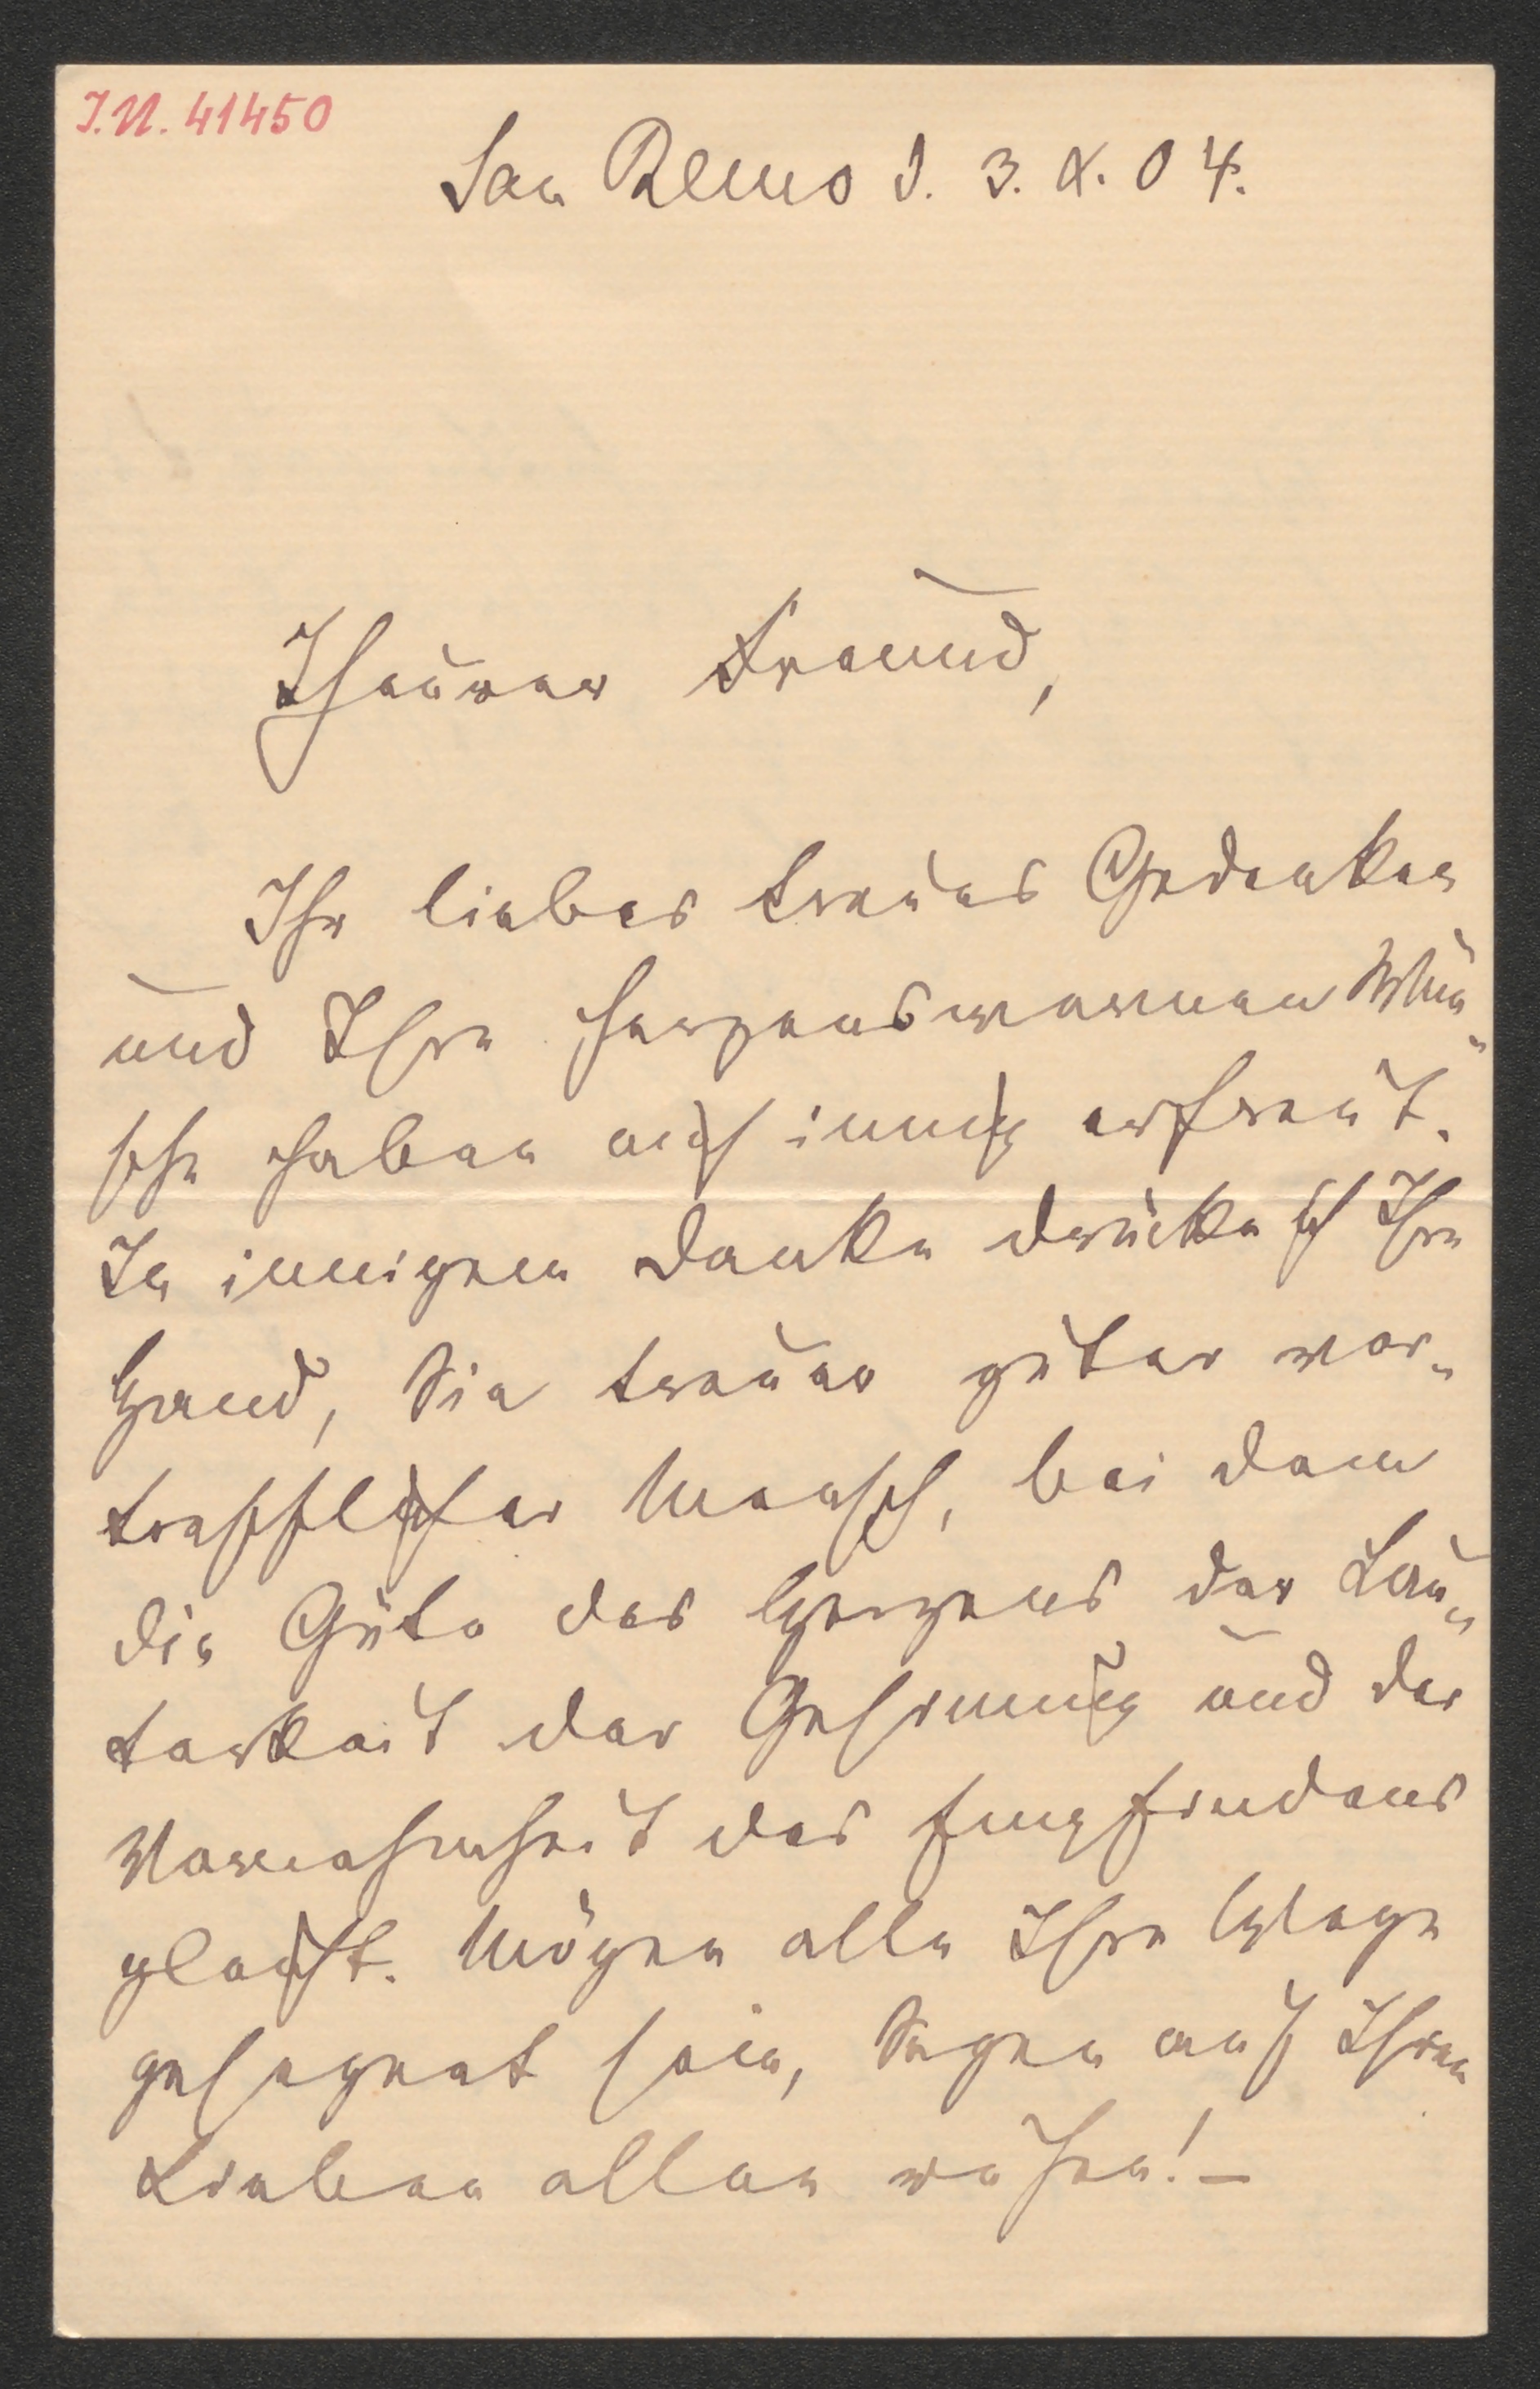 I.N. 41450
San Remo d. 3. X. 04.
Theurer Freund,
Ihr liebes treues Gedenken
und Ihre herzenswarmen Wün-
sche haben mich innig erfreut.
In innigem Danke drücke ich Ihre
Hand, Sie treuer guter vor-
trefflicher Mensch, bei dem
die Güte des Herzens der Lau-
terkeit der Gesinnung und der
Vornehmheit des Empfindens
gleicht. Mögen alle Ihre Wege
gesegnet sein, Segen auf Ihren
Lieben allen ruhen! –